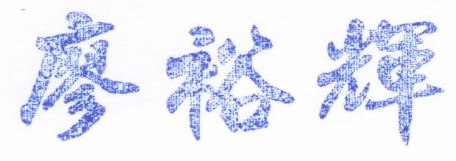 廖裕輝